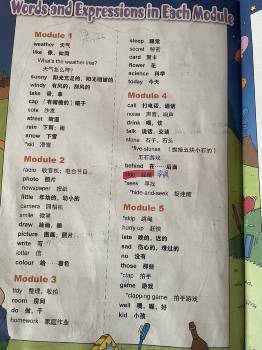 Words and Expressions in Each Module
Module 1
weather 天气
like 像，如同
What's the weather like?
天气怎么样？
sunny 阳光充足的，阳光明媚的
windy 有风的，刮风的
take 带，拿
cap （有帽檐的）帽子
sofa 沙发
street 街道
rain 下雨；雨
snow 下雪
*ski 滑雪
Module 2
radio 收音机；电台节目
photo 照片
newspaper 报纸
little 年幼的，幼小的
camera 照相机
smile 微笑
draw 绘画，画
picture 图画，图片
write 写
letter 信
colour 给……着色
Module 3
tidy 整理，收拾
room 房间
do 做，干
homework 家庭作业
sleep 睡觉
secret 秘密
card 贺卡
flower 花
science 科学
today 今天
Module 4
call 打电话，通话
noise 声音，响声
drink 喝，饮
talk 说话，交谈
stone 石子，石头
*five-stones （抛接五块小石的）
玩石游戏
behind 在……后面
hide
*seek 寻找
*hide-and-seek 捉迷藏
Module 5
*skip 跳绳
hurry up 赶快
late 晚的，迟的
sad 伤心的，难过的
no 没有
those 那些
*clap 拍手
game 游戏
*clapping game 拍手游戏
well 嗯，喔，好
kid 小孩